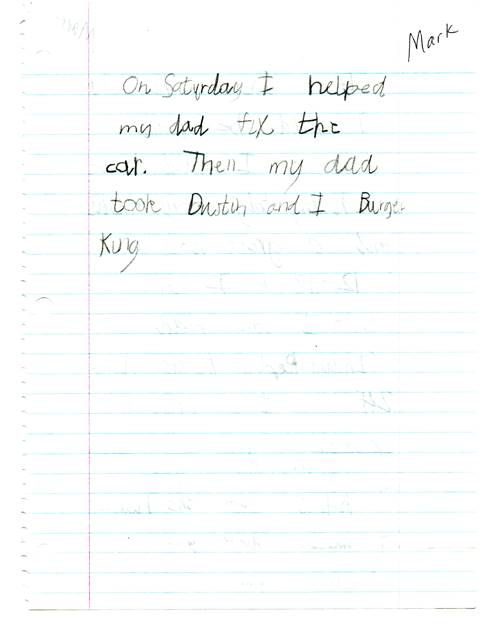 Mark
On Saturday I helped
my dad fix the
car. Then my dad
took Dustin and I Burger
King